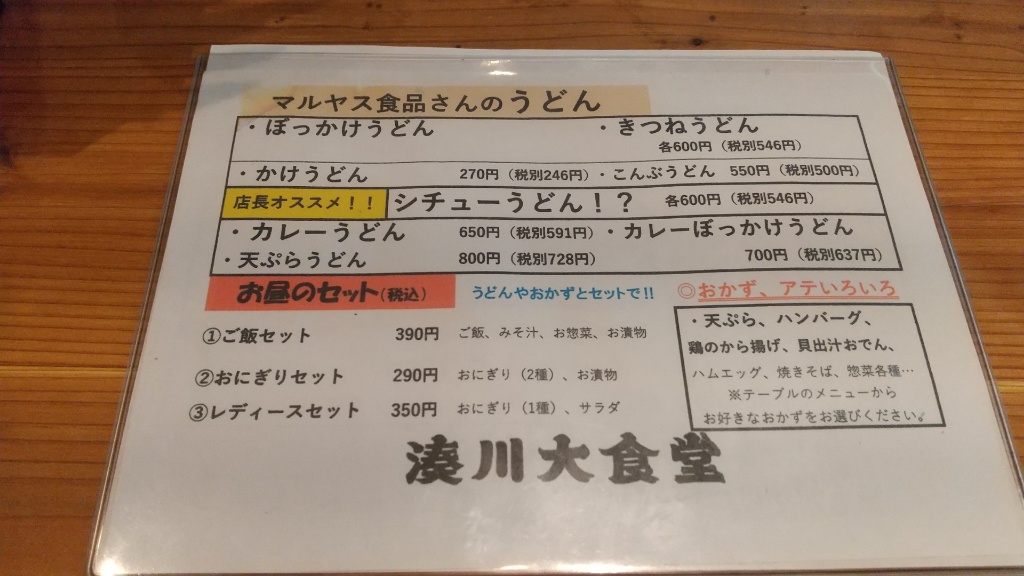 マルヤス食品さんのうどん
・ぼっかけうどん ・きつねうどん
各600円（税別546円）
・かけうどん 270円（税別246円）・こんぶうどん 550円（税別500円）
店長オススメ！！ シチューうどん！？ 各600円（税別546円）
・カレーうどん 650円（税別591円）・カレーぼっかけうどん
・天ぷらうどん 800円（税別728円） 700円（税別637円）
お昼のセット（税込） うどんやおかずとセットで!!
①ご飯セット 390円 ご飯、みそ汁、お惣菜、お漬物
②おにぎりセット 290円 おにぎり（2種）、お漬物
③レディースセット 350円 おにぎり（1種）、サラダ
◎おかず、アテいろいろ
・天ぷら、ハンバーグ、
鶏のから揚げ、貝出汁おでん、
ハムエッグ、焼きそば、惣菜各種…
※テーブルのメニューから
お好きなおかずをお選びください。
湊川大食堂